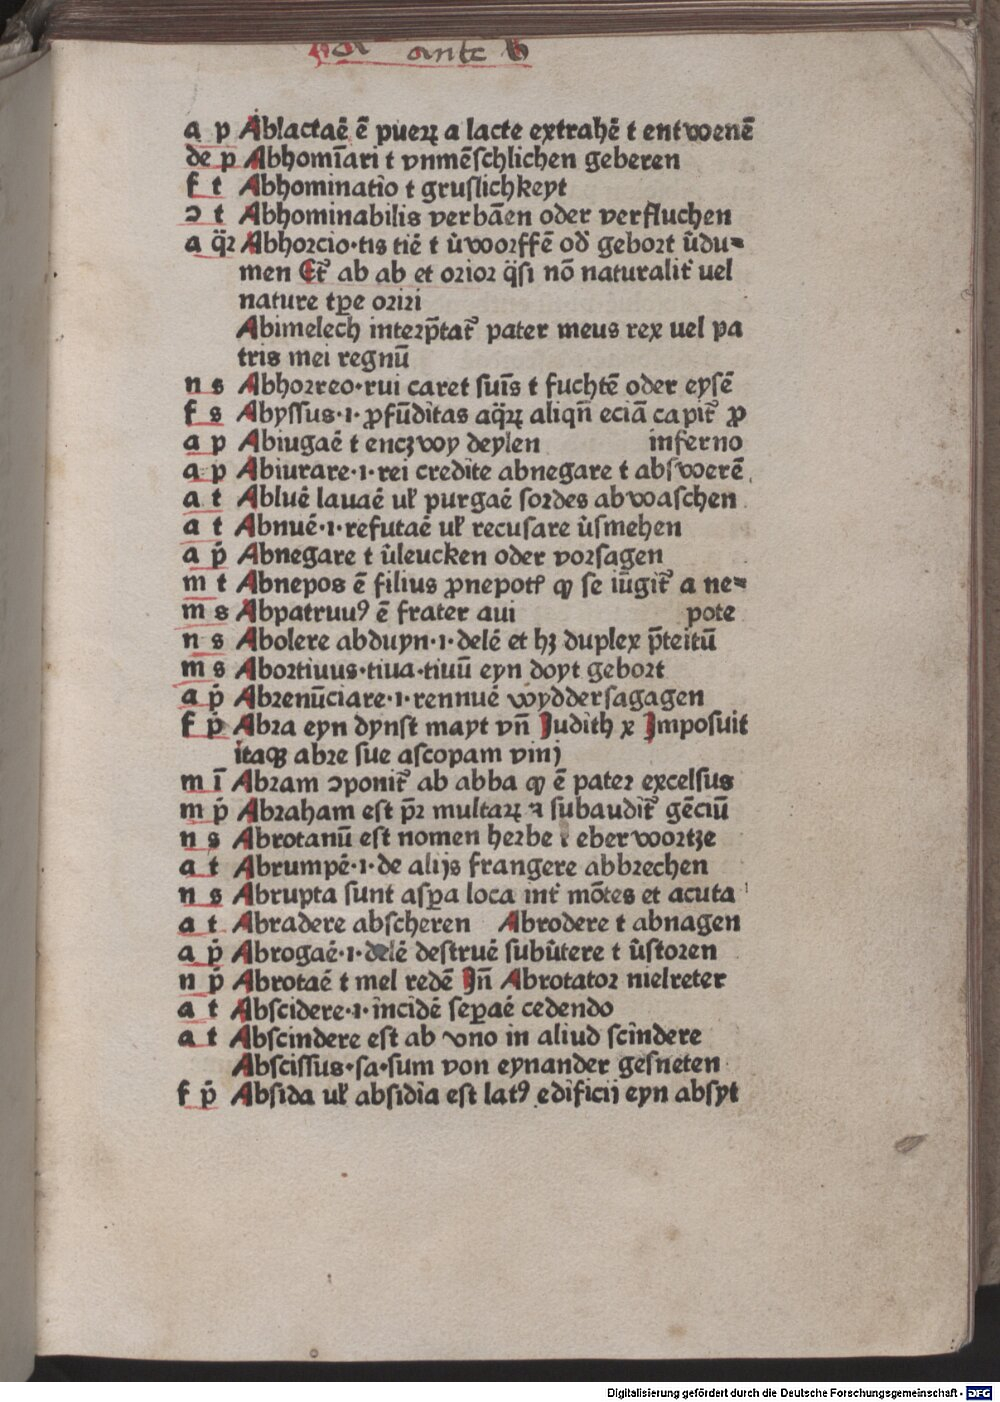 A ante b
a p Ablactaē ē pueꝝ a lacte extrahē t entwenē
de p Abhomīari t vnmēschlichen geberen
f t Abhominatio t gruslichkeyt
ɔ t Abhominabilis verbāen oder verfluchen
a q̈ꝛ Abhorcio·tis tiē t v̉worffē od̉ gebort v̉du-
men Et᷑ ab ab et orior q̈si nō naturalit᷑ uel
nature tꝑe oriri
Abimelech interp̄tat᷑ pater meus rex uel pa
tris mei regnū
n s Abhorreo·rui caret suīs t fuchtē oder eysē
f s Abyssus·ı· ꝓfūditas aq̈ꝝ aliqn̄ eciā capit᷑ ꝓ
a p Abiugaē t enczwoy deylen inferno
a p Abiurare·ı·rei credite abnegare t abswerē
a t Abluē lauaē uł purgaē sordes abwaschen
a t Abnuē·ı·refutaē uł recusare v̉smehen
a ṗ Abnegare t v̉leucken oder vorsagen
m t Abnepos ē filius ꝓnepot᷑ ꝙ se iūgit᷑ a ne-
m s Abpatruuꝰ ē frater aui pote
n s Abolere abduyn·ı·delē et hꝫ duplex p̄teitū
m s Abortiuus·tiua·tiuū eyn doyt gebort
a ṗ Abrenūciare·ı·rennuē wyddersagagen
f ṗ Abra eyn dynst mayt vn̄ Judith x Imposuit
itaqꝫ abre sue ascopam vinj
m ī Abram ɔponit᷑ ab abba ꝙ ē pater excelsus
m ṗ Abraham est p̄r multaꝝ ⁊ subaudit᷑ gēciū
n s Abrotanū est nomen herbe t eberwortze
a t Abrumpē·ı·de alijs frangere abbrechen
n s Abrupta sunt asꝑa loca int᷑ mōtes et acuta
a t Abradere abscheren Abrodere t abnagen
a ṗ Abrogaē·ı·delē destruē subv̉tere t v̉storen
n ṗ Abrotaē t mel redē Jn̄ Abrotator nielreter
a t Abscidere·ı·incidē seꝑaē cedendo
a t Abscindere est ab vno in aliud scindere
Abscissus·sa·sum von eynander gesneten
f ṗ Absida uł absidia est latꝰ edificij eyn absyt
Digitalisierung gefördert durch die Deutsche Forschungsgemeinschaft - DFG